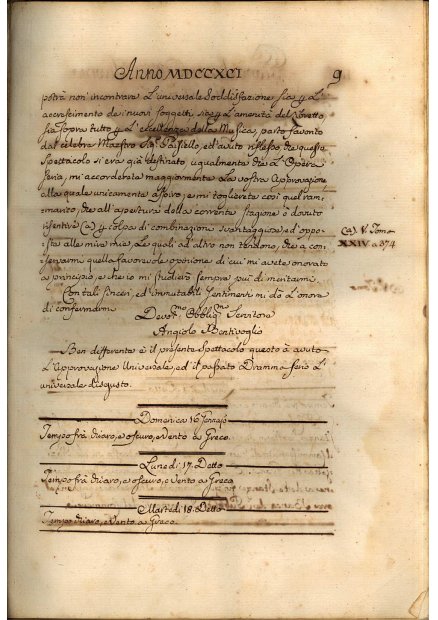 Anno MDCCXCI
9
potrà non' incontrare L'universale Soddisfazione sia p L'
accrescimento de' nuovi soggetti, sia p L'amenità del Libretto,
sia sopra tutto p L'eccellenza della Musica, parto favorito
dal celebre Maestro Sig. Paisiello, ed avuto riflesso, che questo
Spettacolo si era già destinato ugualmente che L'Opera
seria, mi accorderete maggiormente La vostra Approvazione
alla quale unicamente aspiro, e mi toglierete così quel ram=
marico, che all'apertura della corrente stagione ò dovuto
risentire (a) p colpa di combinazione svantaggiosa, ed oppo=
sta alle mire mie, Le quali ad altro non tendono, che a con=
servarmi quella favorevole opinione di cui mi avete onorato
a principio, e che io mi studierò sempre più di meritarmi.
(a) V. Tomo
XXIV a 374
Con tali sinceri, ed' immutabili sentimenti mi do L'onore
di confermarmi
Devot.mo Obblig.mo Servitore
Angiolo Bentivoglio
Ben differente è il presente Spettacolo questo à avuto
L'Approvazione Universale, ed il passato Dramma serio L'
universale disgusto.
Domenica 16 Gennajo
Tempo frà chiaro, e oscuro, e Vento a Greco.
Lunedì 17. Detto
Tempo frà chiaro, e oscuro, e Vento a Greco
Martedì 18. Detto
Tempo chiaro, e Vento a Greco.